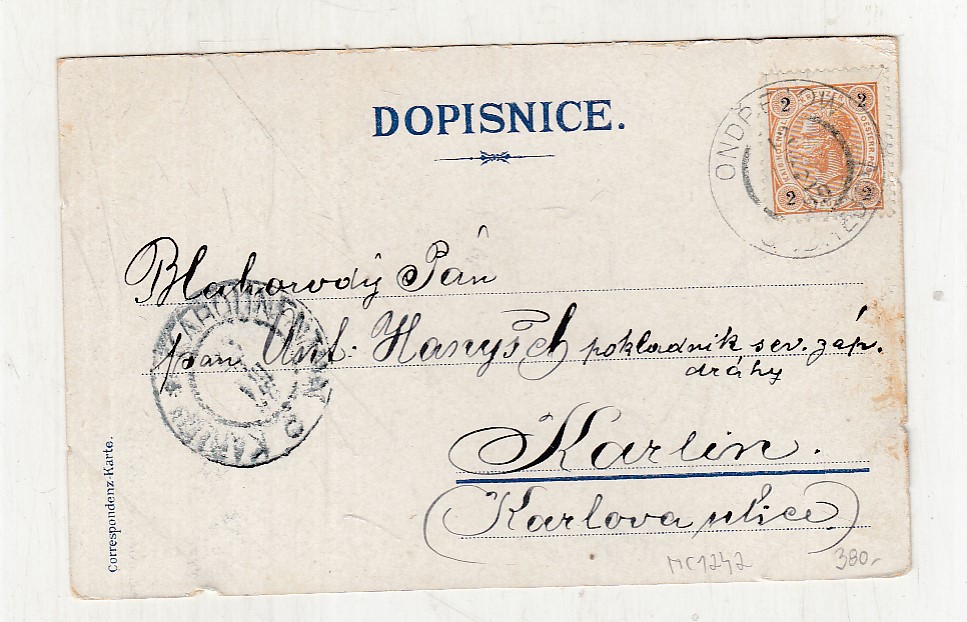 DOPISNICE.
2 2
2 2
ONDŘEJOW
Blahorodý Pán
pan Ant. Hanysch pokladník sev. záp.
dráhy
Karlín.
(Karlova ulice)
Correspondenz-Karte.
KAROLINENTHAL
MC1242
380,-